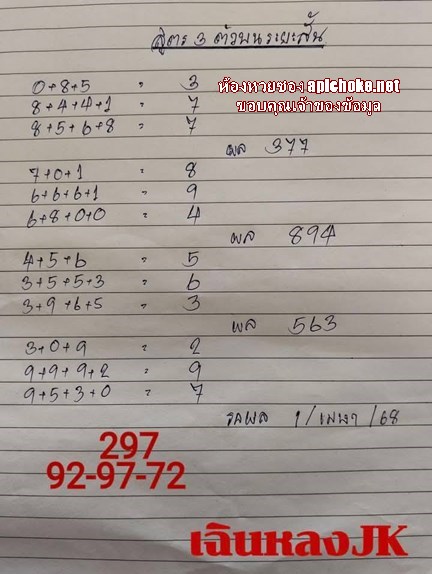 สูตร 3 ตัวบน ระยะสั้น
0+8+5 = 3
ห้องหวยซอง aplchoke.net
8+4+4+1 = 7
ขอบคุณเจ้าของข้อมูล
8+5+6+8 = 7
ผล 377
7+0+1 = 8
6+6+6+1 = 9
6+8+0+0 = 4
ผล 894
4+5+6 = 5
3+5+5+3 = 6
3+9+6+5 = 3
ผล 563
3+0+9 = 2
9+9+9+2 = 9
9+5+3+0 = 7
รอผล 1/เมษา/68
297
92-97-72
เฉินหลงJK